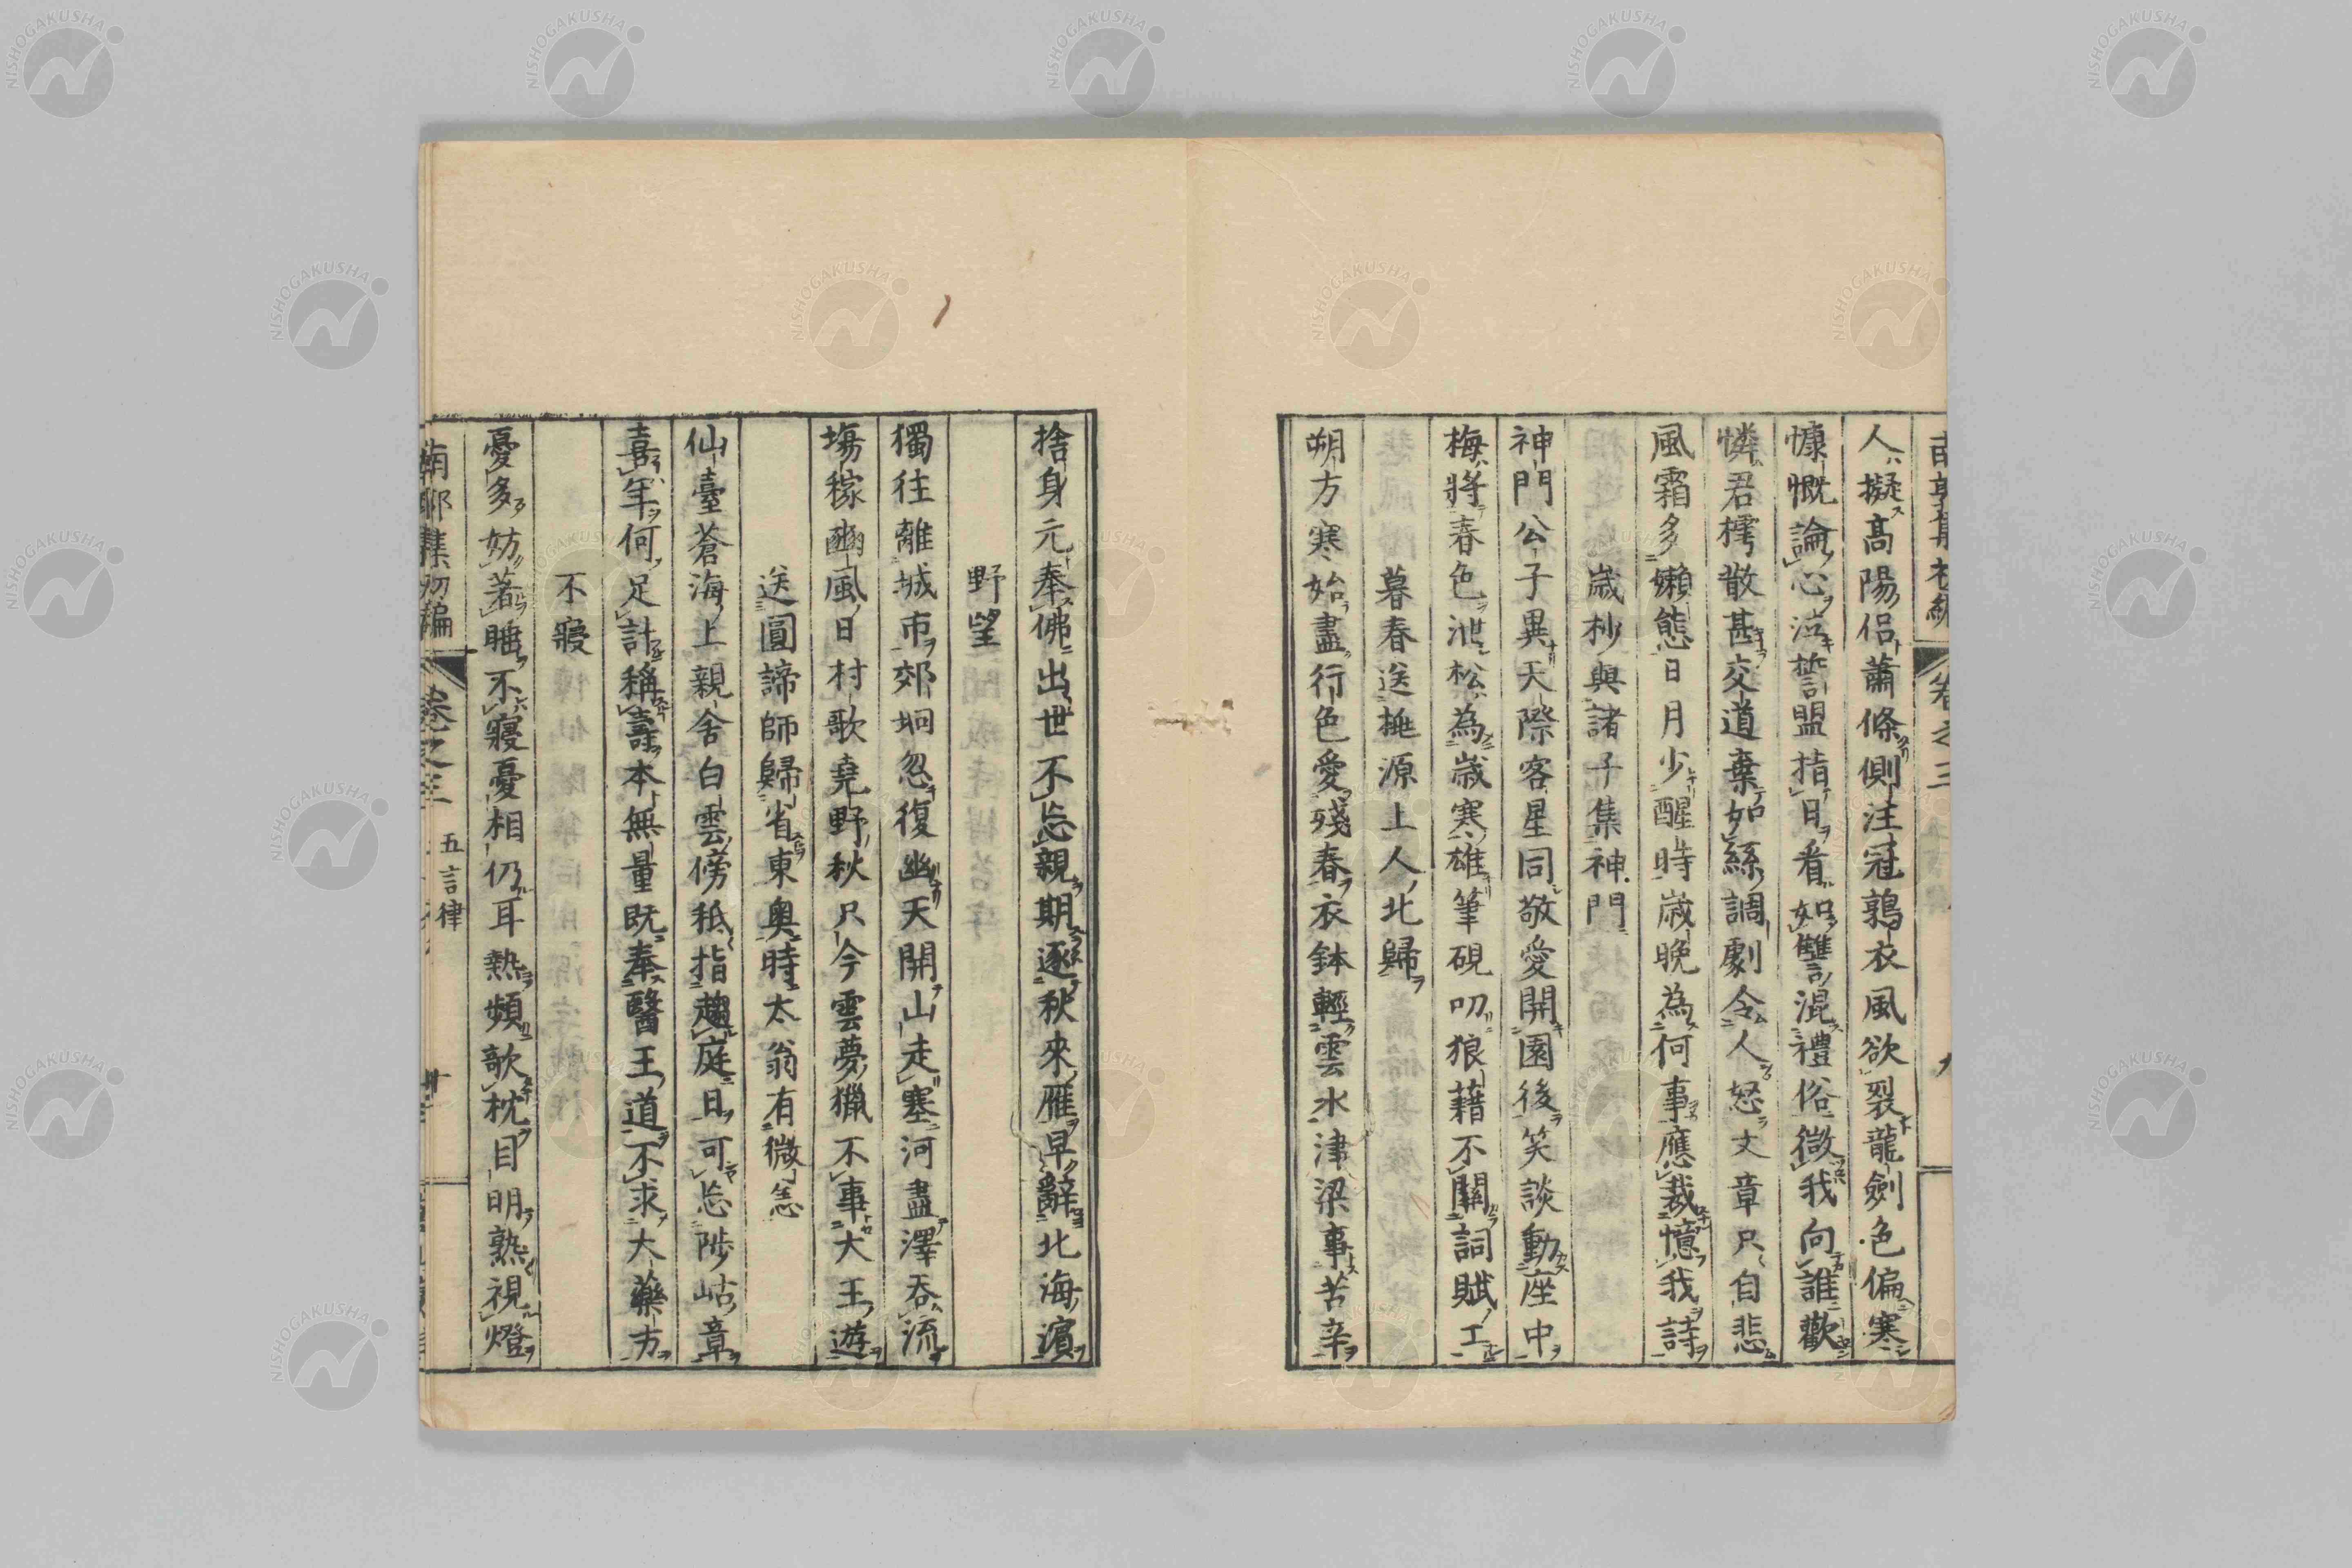 人擬高陽侶蕭條側注冠鶉衣風欲裂龍劍色偏寒
慷慨論心泣誓盟指日看如讐混禮俗微我向誰歡
憐君樗散甚交道棄如絲調劇令人怒文章只自悲
風霜多嬾態日月少醒時歲晚為何事應裁憶我詩
歲杪與諸子集神門
神門公子異天際客星同敬愛開園後笑談動座中
梅將春色池松為歲寒雄筆硯叨狼藉不關詞賦工
暮春送桃源上人北歸
朔方寒始盡行色愛殘春衣鉢輕雲水津梁事苦辛
捨身元奉佛出世不忘親期逐秋來雁早辭北海濵
野望
獨往離城市郊坰忽復幽天開山走塞河盡澤吞流
塲稼豳風日村歌堯野秋只今雲夢獵不事大王遊
送圓諦師歸省東奧時太翁有微恙
仙臺蒼海上親舍白雲傍秖指趨庭日可忘陟岵章
喜年何足計稱壽本無量既奉醫王道不求大藥方
不寢
憂多妨著睡不寢憂相仍耳熱頻欹枕目明熟視燈
南郭集初編
卷之三
五言律
NISHOGAKUSHA